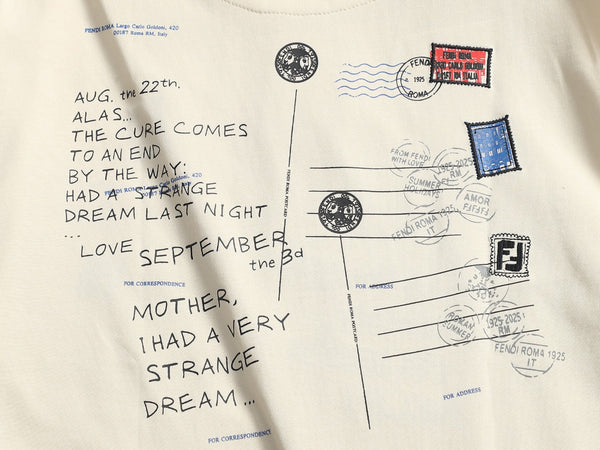 FENDI ROMA Largo Carlo Goldoni, 420
00187 Roma RM, Italy
AUG. the 22th.
ALAS...
THE CURE COMES
TO AN END
BY THE WAY:
HAD A STRANGE
DREAM LAST NIGHT
...
LOVE SEPTEMBER
the 3d
FOR CORRESPONDENCE
MOTHER,
I HAD A VERY
STRANGE
DREAM...
FOR CORRESPONDENCE
FENDI
1925
ROMA
FENDI ROMA
FENDI ROMA POSTCARD
FROM FENDI
WITH LOVE
1925-2025
RM
SUMMER
HOLIDAYS
AMOR
FENDI ROMA 1925
IT
FF
FOR ADDRESS
FENDI ROMA POSTCARD
ROMAN
SUMMER
1925-2025
RM
FENDI ROMA 1925
IT
FOR ADDRESS